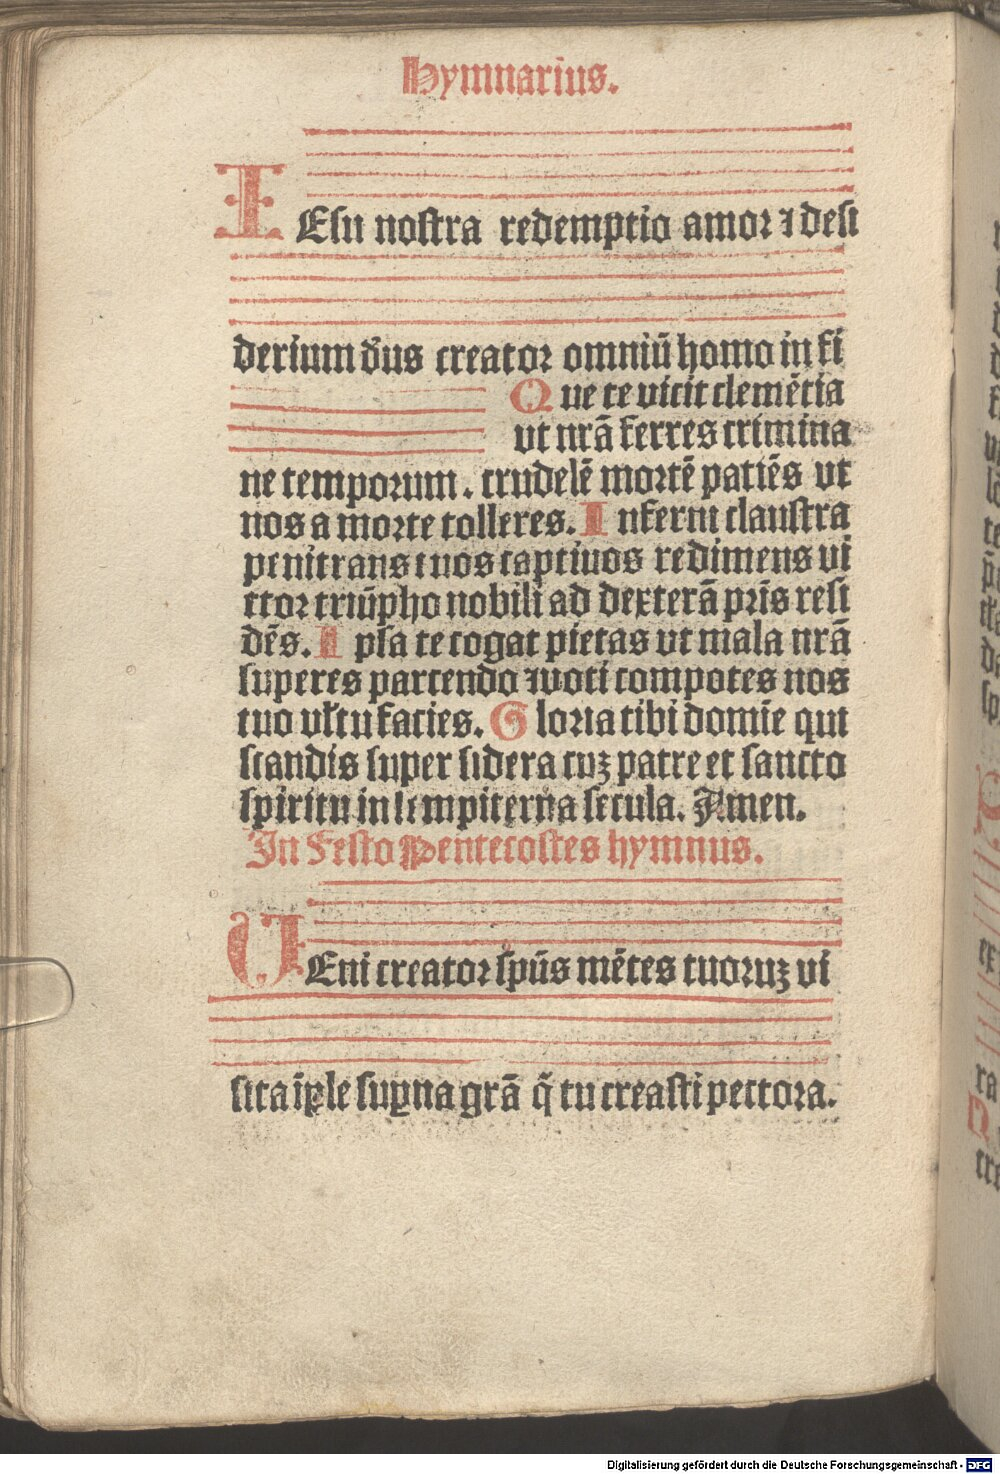 Hymnarius.
IEsu nostra redemptio amor ⁊ desi
derium d̄us creator omniū homo in fi
Que te vicit clemētia
vt nr̄ā ferres crimina
ne temporum. crudelē mortē patiēs vt
nos a morte tolleres. Inferni claustra
penitrans tuos captiuos redimens vi
ctor triūpho nobili ad dexterā pr̄is resi
dēs. Ipsa te cogat pietas vt mala nr̄ā
superes parcendo ⁊ voti compotes nos
tuo vl̄tu facies. Gloria tibi domīe qui
scandis super sidera cuꝫ patre et sancto
spiritu in sempiterna secula. Amen.
In Festo Pentecostes hymnus.
VEni creator sp̄us mētes tuoruꝫ vi
sita īple suꝑna gr̄ā q̄ tu creasti pectora.
Digitalisierung gefördert durch die Deutsche Forschungsgemeinschaft - DFG